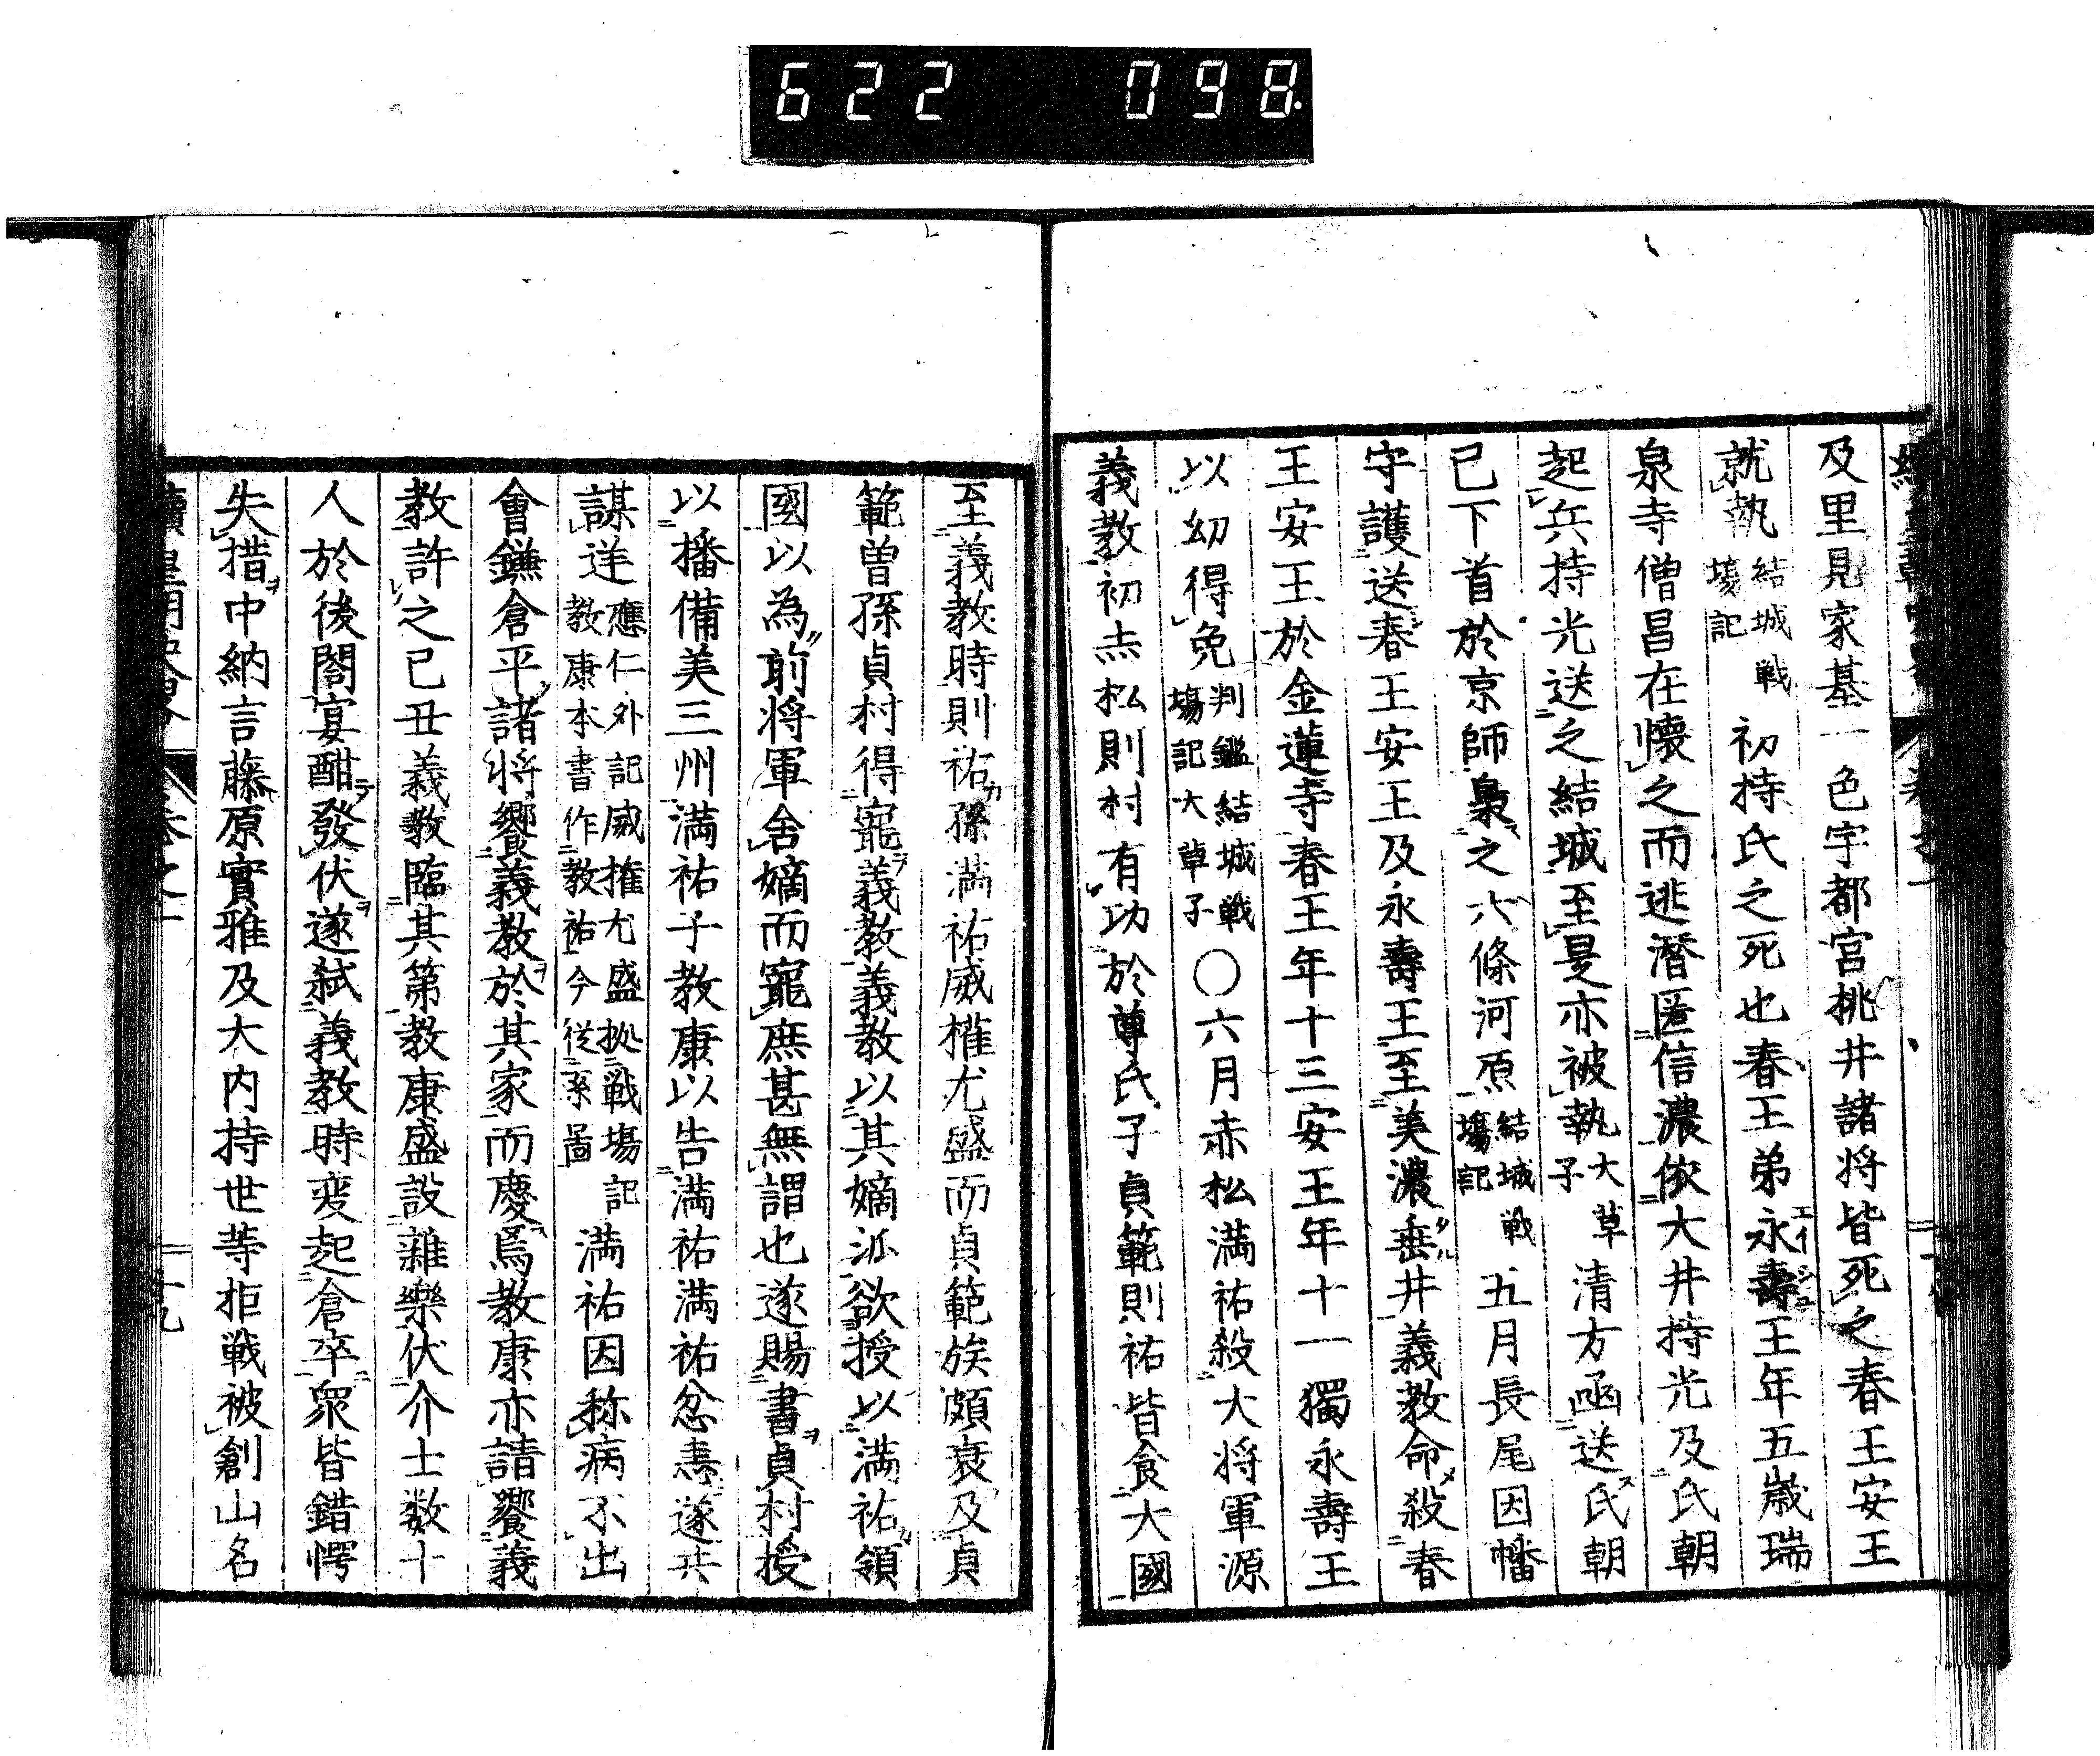 622 098
及里見家基一色宇都宮桃井諸将皆死之春王安王
就執結城戦場記初持氏之死也春王弟永壽王年五歳瑞
泉寺僧昌在懐之而逃潜匿信濃依大井持光及氏朝
起兵持光送之結城至是亦被執大草子清方函送氏朝
已下首於京師梟之六條河原結城戦場記五月長尾因幡
守護送春王安王及永壽王至美濃垂井義教命殺春
王安王於金蓮寺春王年十三安王年十一獨永壽王
以幼得免判鑑結城戦場記大草子〇六月赤松満祐殺大将軍源
義教初赤松則村有功於尊氏子貞範則祐皆食大國
至義教時則祐孫満祐威権尤盛而貞範族頗衰及貞
範曽孫貞村得寵義教義教以其嫡派欲授以満祐領
國以為前将軍舍嫡而寵庶甚無謂也遂賜書貞村授
以播備美三州満祐子教康以告満祐満祐忿恚遂共
謀逆應仁外記威権尤盛拠戦場記教康本書作教祐今従系圖満祐因称病不出
會鎌倉平諸将饗義教於其家而慶焉教康亦請饗義
教許之已丑義教臨其第教康盛設雑樂伏介士数十
人於後閤宴酣發伏遂弑義教時変起倉卒衆皆錯愕
失措中納言藤原實雅及大内持世等拒戦被創山名